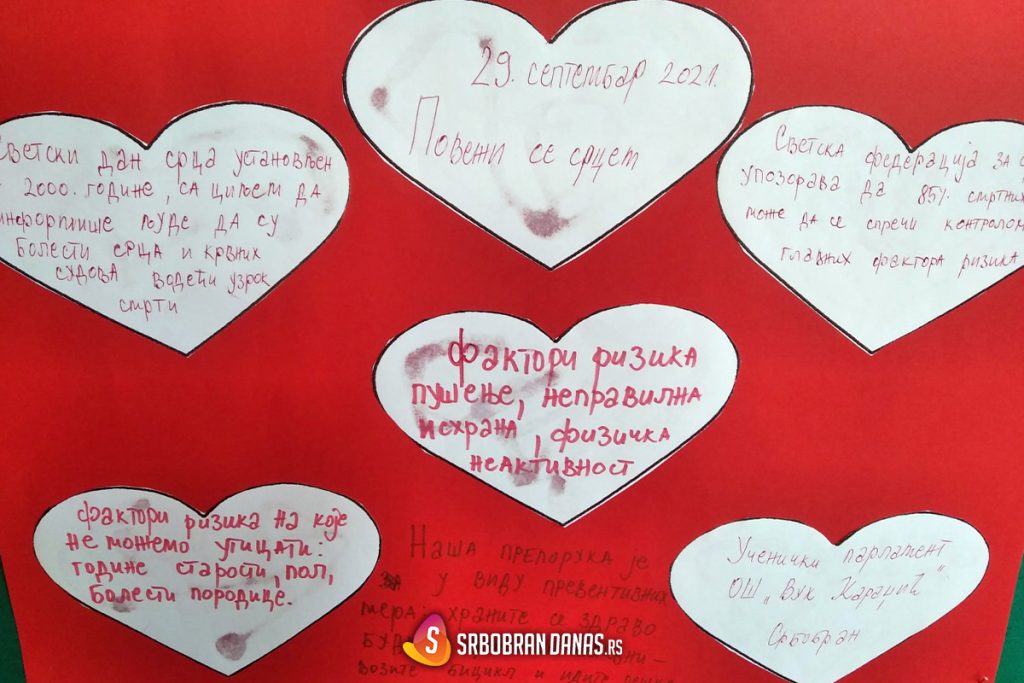 29. септембар 2021.
Повежи се срцем
Светски дан срца установљен
2000. године, са циљем да
информише људе да су
болести срца и крвних
судова водећи узрок
смрти
Светска федерација за
упозорава да 85% смртних
може да се спречи контролом
главних фактора ризика
фактори ризика
пушење, неправилна
исхрана, физичка
неактивност
фактори ризика на које
не можемо утицати:
године старости, пол,
болести породице.
Наша препорука је
за у виду превентивних
мера: храните се здраво
возите бицикл и идите пешке
Ученички парламент
ОШ „Вук Караџић"
Србобран
S SRBOBRAN DANAS.RS